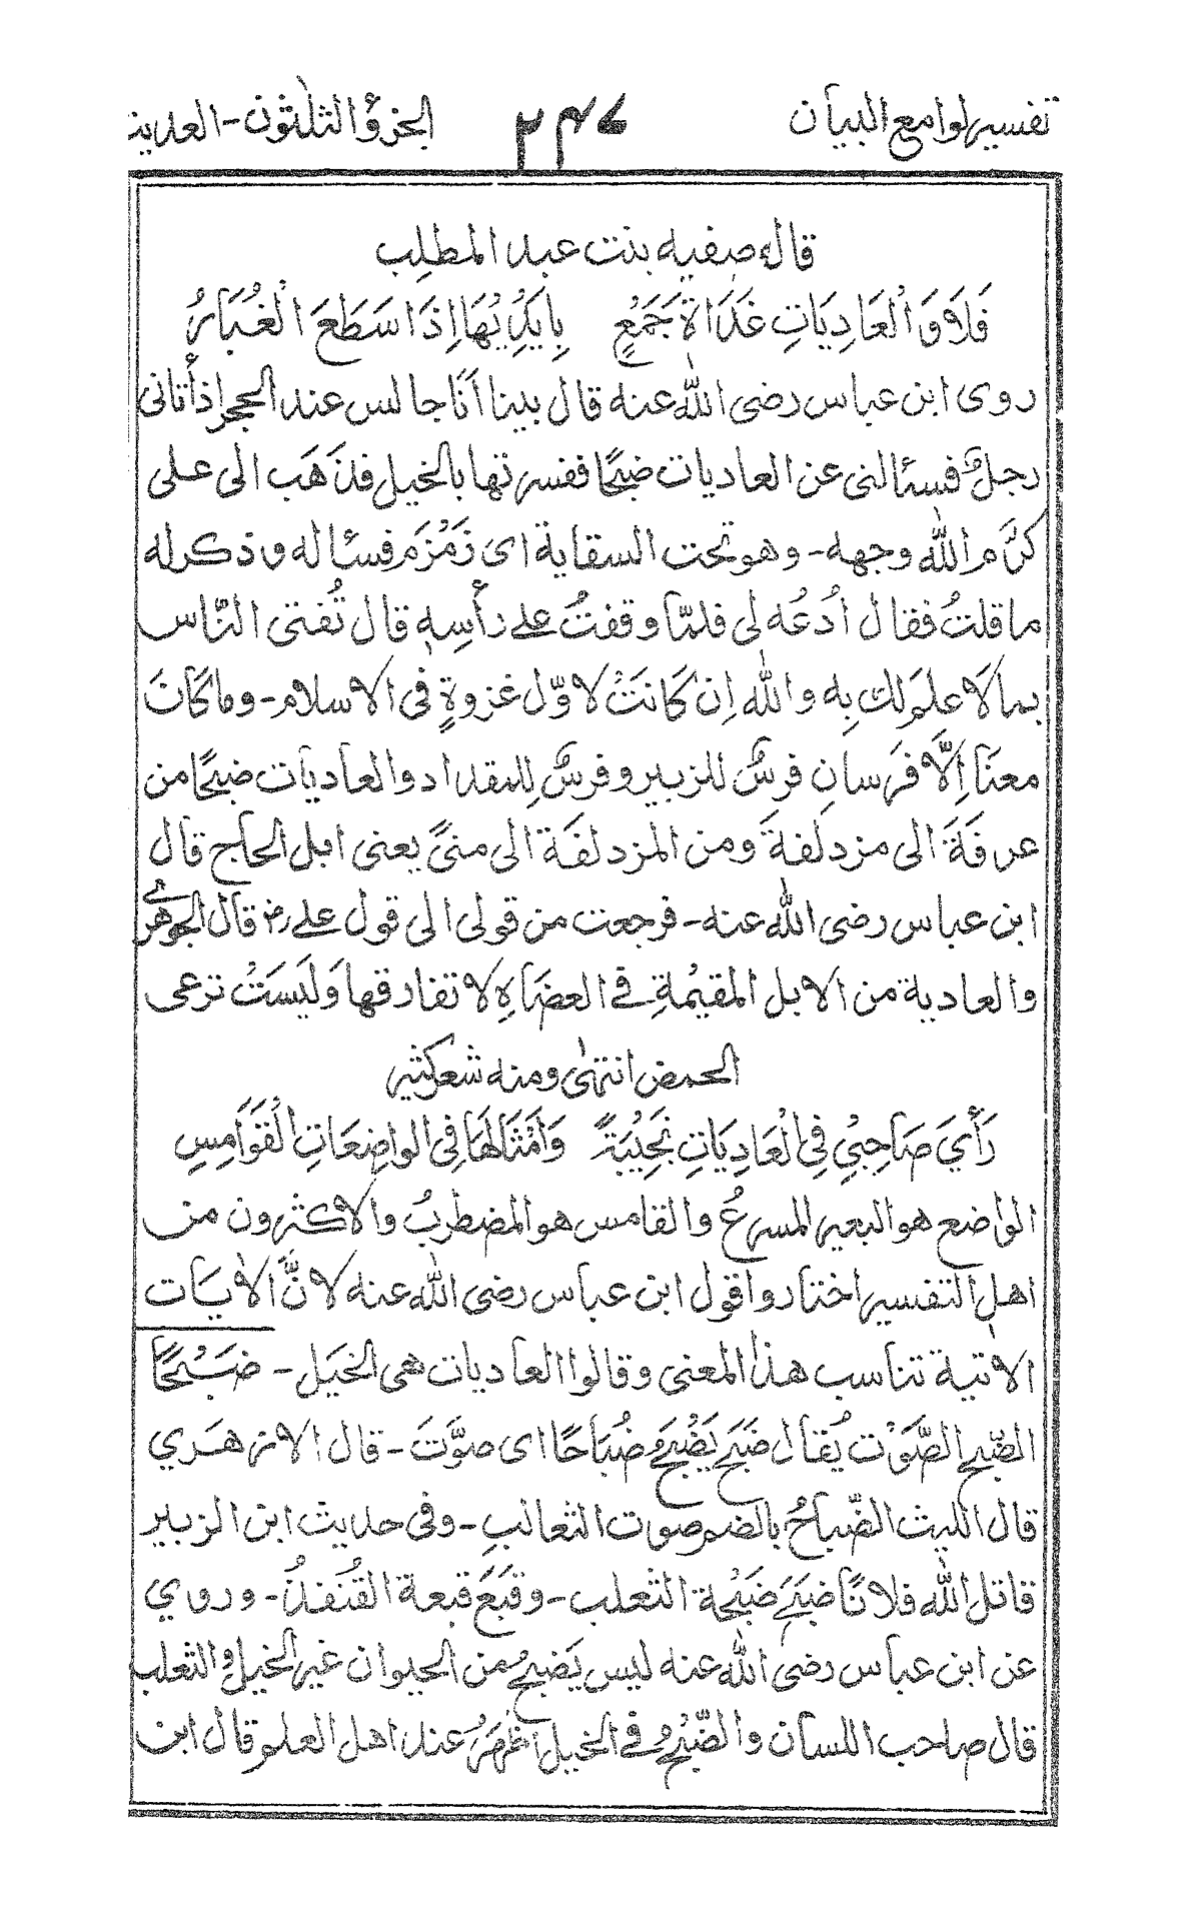 تفسير لوامع البيان ۲۴۷ الجزؤ الثلثون - العديت
قال صفيه بنت عبد المطلب
فَلَا وَ الْعَادِيَاتِ غَدَاةَ جَمَعٍ بِاَيْدِيْهَا اِذَا سَطَعَ الْغُبَارُ
روى ابن عباس رضى الله عنه قال بينا أنا جالس عند الحجر اذ أتانى
رجلٌ فسئالنى عن العاديات ضبحًا ففسرتها بالخيل فذهَب الى على
كرَّم الله وجهه - وهو تحت السقاية اى زَمْزَم فسئاله و ذكر له
ما قلتُ فقال اُدعُه لى فلمّا وقفتُ على رأسِهٖ قال تُفتى النّاس
بما لا علمَ لك بِه والله اِن كَانَتْ لاوّل غزوةٍ فى الاسلام - وما كَانَ
معنَا اِلَّا فَرَسانِ فرسٌ للزبير وفرسٌ لِلمقداد و العاديات ضبحًا من
عرفَةَ الى مزدلفةَ ومن المزدلفَة الى منىً يعنى ابل الحاج قال
ابن عباس رضى الله عنه - فرجعت من قولى الى قول على رض قال الجوهرى
والعادية من الابل المقيْمةِ فى العضَاهِ لا تفارقها وَلَيسَتْ ترعى
الحمض انتهى ومنه شعر كثير
رَأٰيَ صَاحِبِيْ فِى الْعَادِيَاتِ نَجِيْبَةً وَاَمْثَالَهَا فِى الواضِعَاتِ الْقَوَامِسِ
الواضع هو البعير المسرعُ والقامس هو المضطربُ والاكثرون من
اهلِ التفسير اختاروا قول ابن عباس رضى الله عنه لانَّ الاٰيَات
الاٰتية تناسب هذا المعنى وقالوا العاديات هى الخيَل - ضَبْحًا
الضّبح الصَّوَت يُقال ضَبَح يَضْبَحُ ضُبَاحًا اى صوَّتَ - قال الازهَري
قال الليث الضّباحُ بالضم صوت الثعالب - وفى حديث ابن الزبير
قاتل الله فلانًا ضَبَحَ ضَبْحة الثعلب - وقَبَعَ قبعة القُنفذُ - وروي
عن ابن عباس رضى الله عنه ليس يَضبحُ من الحيوان غير الخيل و الثعلب
قال صاحب اللسان والضّبْحُ فى الخيل اظهرُ عند اهل العلم قال ابن